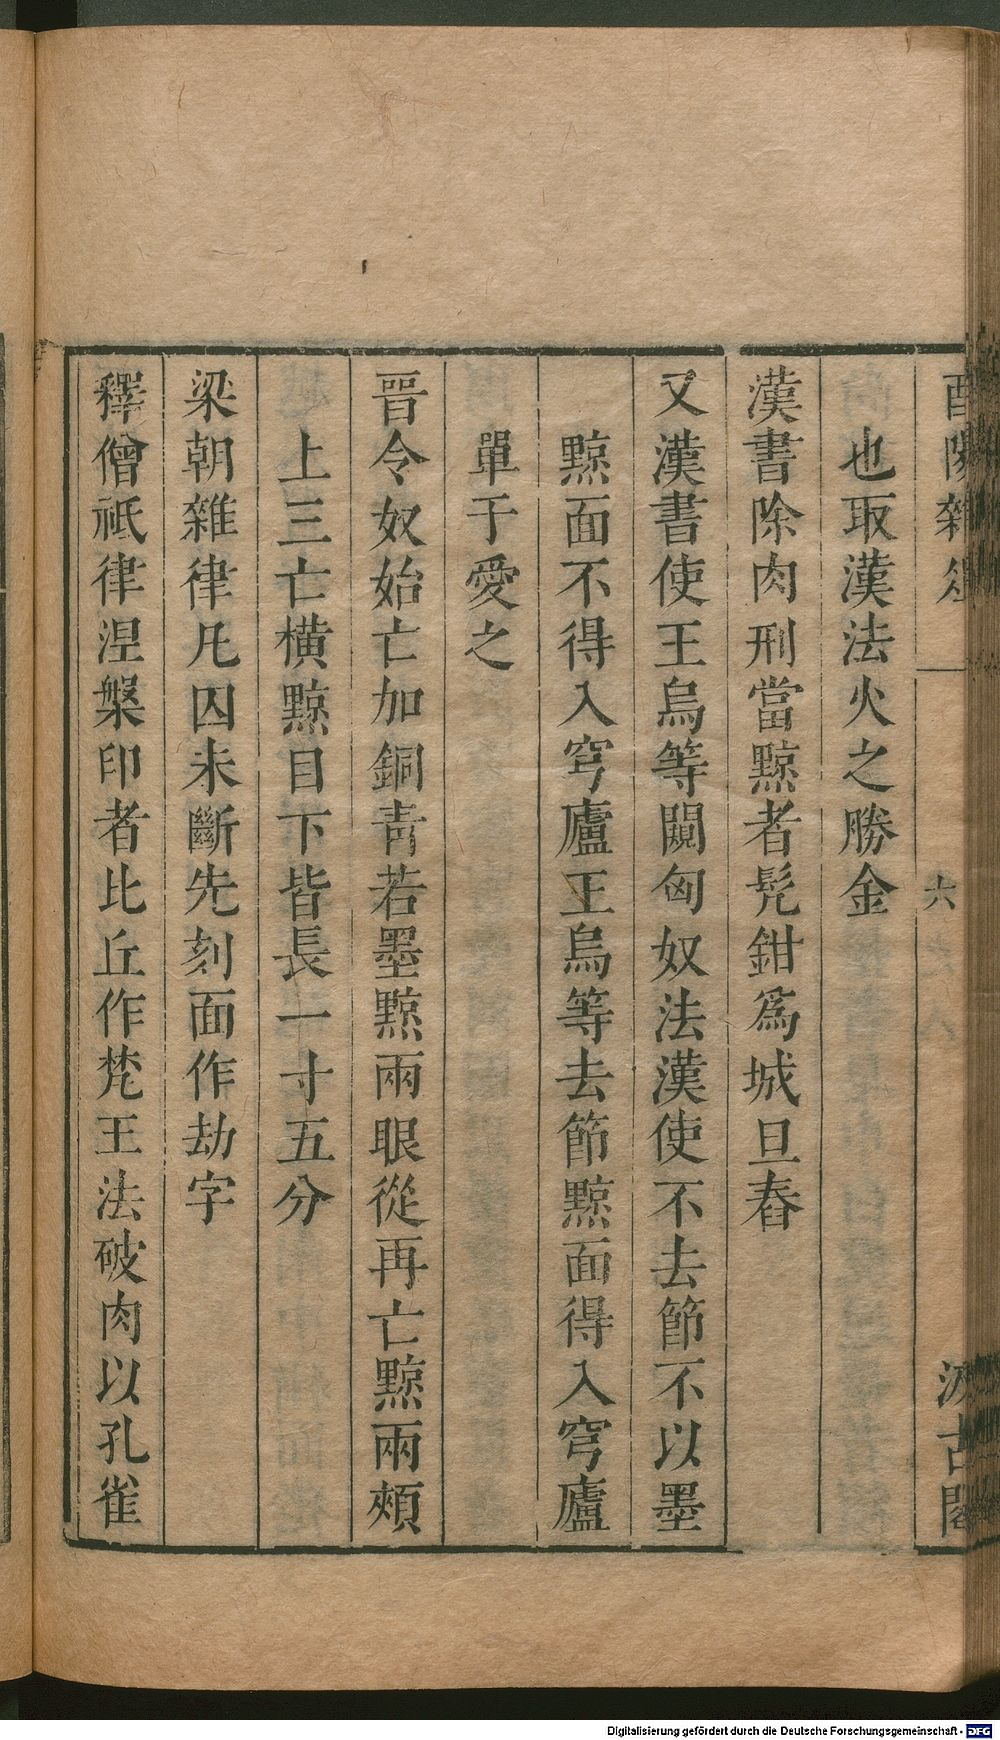 酉陽雜俎
六
汲古閣
也取漢法火之勝金
漢書除肉刑當黥者髡鉗爲城旦舂
又漢書使王烏等闚匈奴法漢使不去節不以墨
黥面不得入穹廬王烏等去節黥面得入穹廬
單于愛之
晉令奴始亡加銅青若墨黥兩眼從再亡黥兩頰
上三亡橫黥目下皆長一寸五分
梁朝雜律凡囚未斷先刻面作劫字
釋僧祇律涅槃印者比丘作梵王法破肉以孔雀
Digitalisierung gefördert durch die Deutsche Forschungsgemeinschaft - DFG